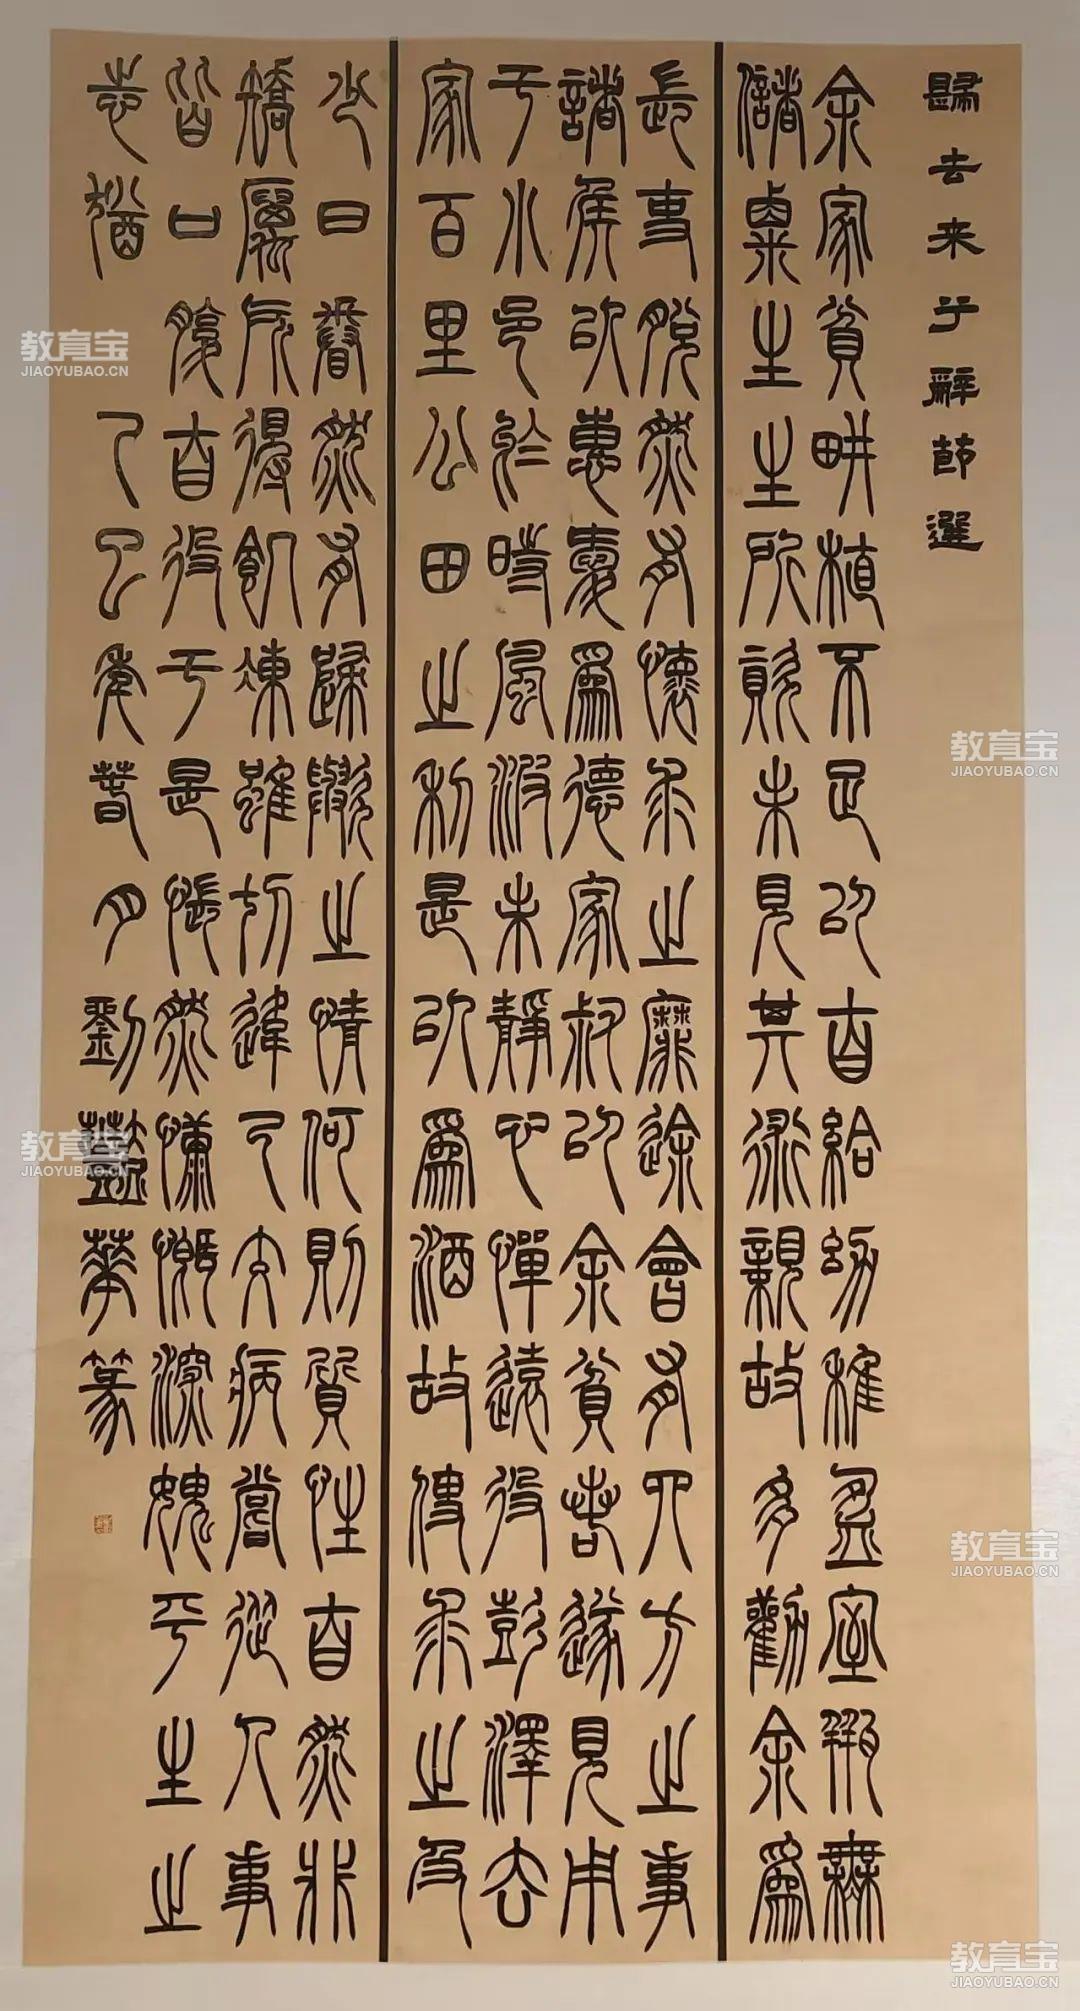 歸去來兮辭節選
余家貧耕植不足以自給幼稚盈室缾無
儲粟生生所資未見其術親故多勸余為
長吏脫然有懷求之靡途會有四方之事
諸侯以惠愛為德家叔以余貧苦遂見用
于小邑於時風波未靜心憚遠役彭澤去
家百里公田之利足以為酒故便求之及
少日眷然有歸歟之情何則質性自然非
矯厲所得飢凍雖切違己交病嘗從人事
皆口腹自役于是悵然慷慨深愧平生之
志猶 乙巳年春月劉豔華篆
教育宝
JIAOYUBAO.CN
教育宝
JIAOYUBAO.CN
教育宝
JIAOYUBAO.CN
教育宝
JIAOYUBAO.CN
教育宝
JIAOYUBAO.CN